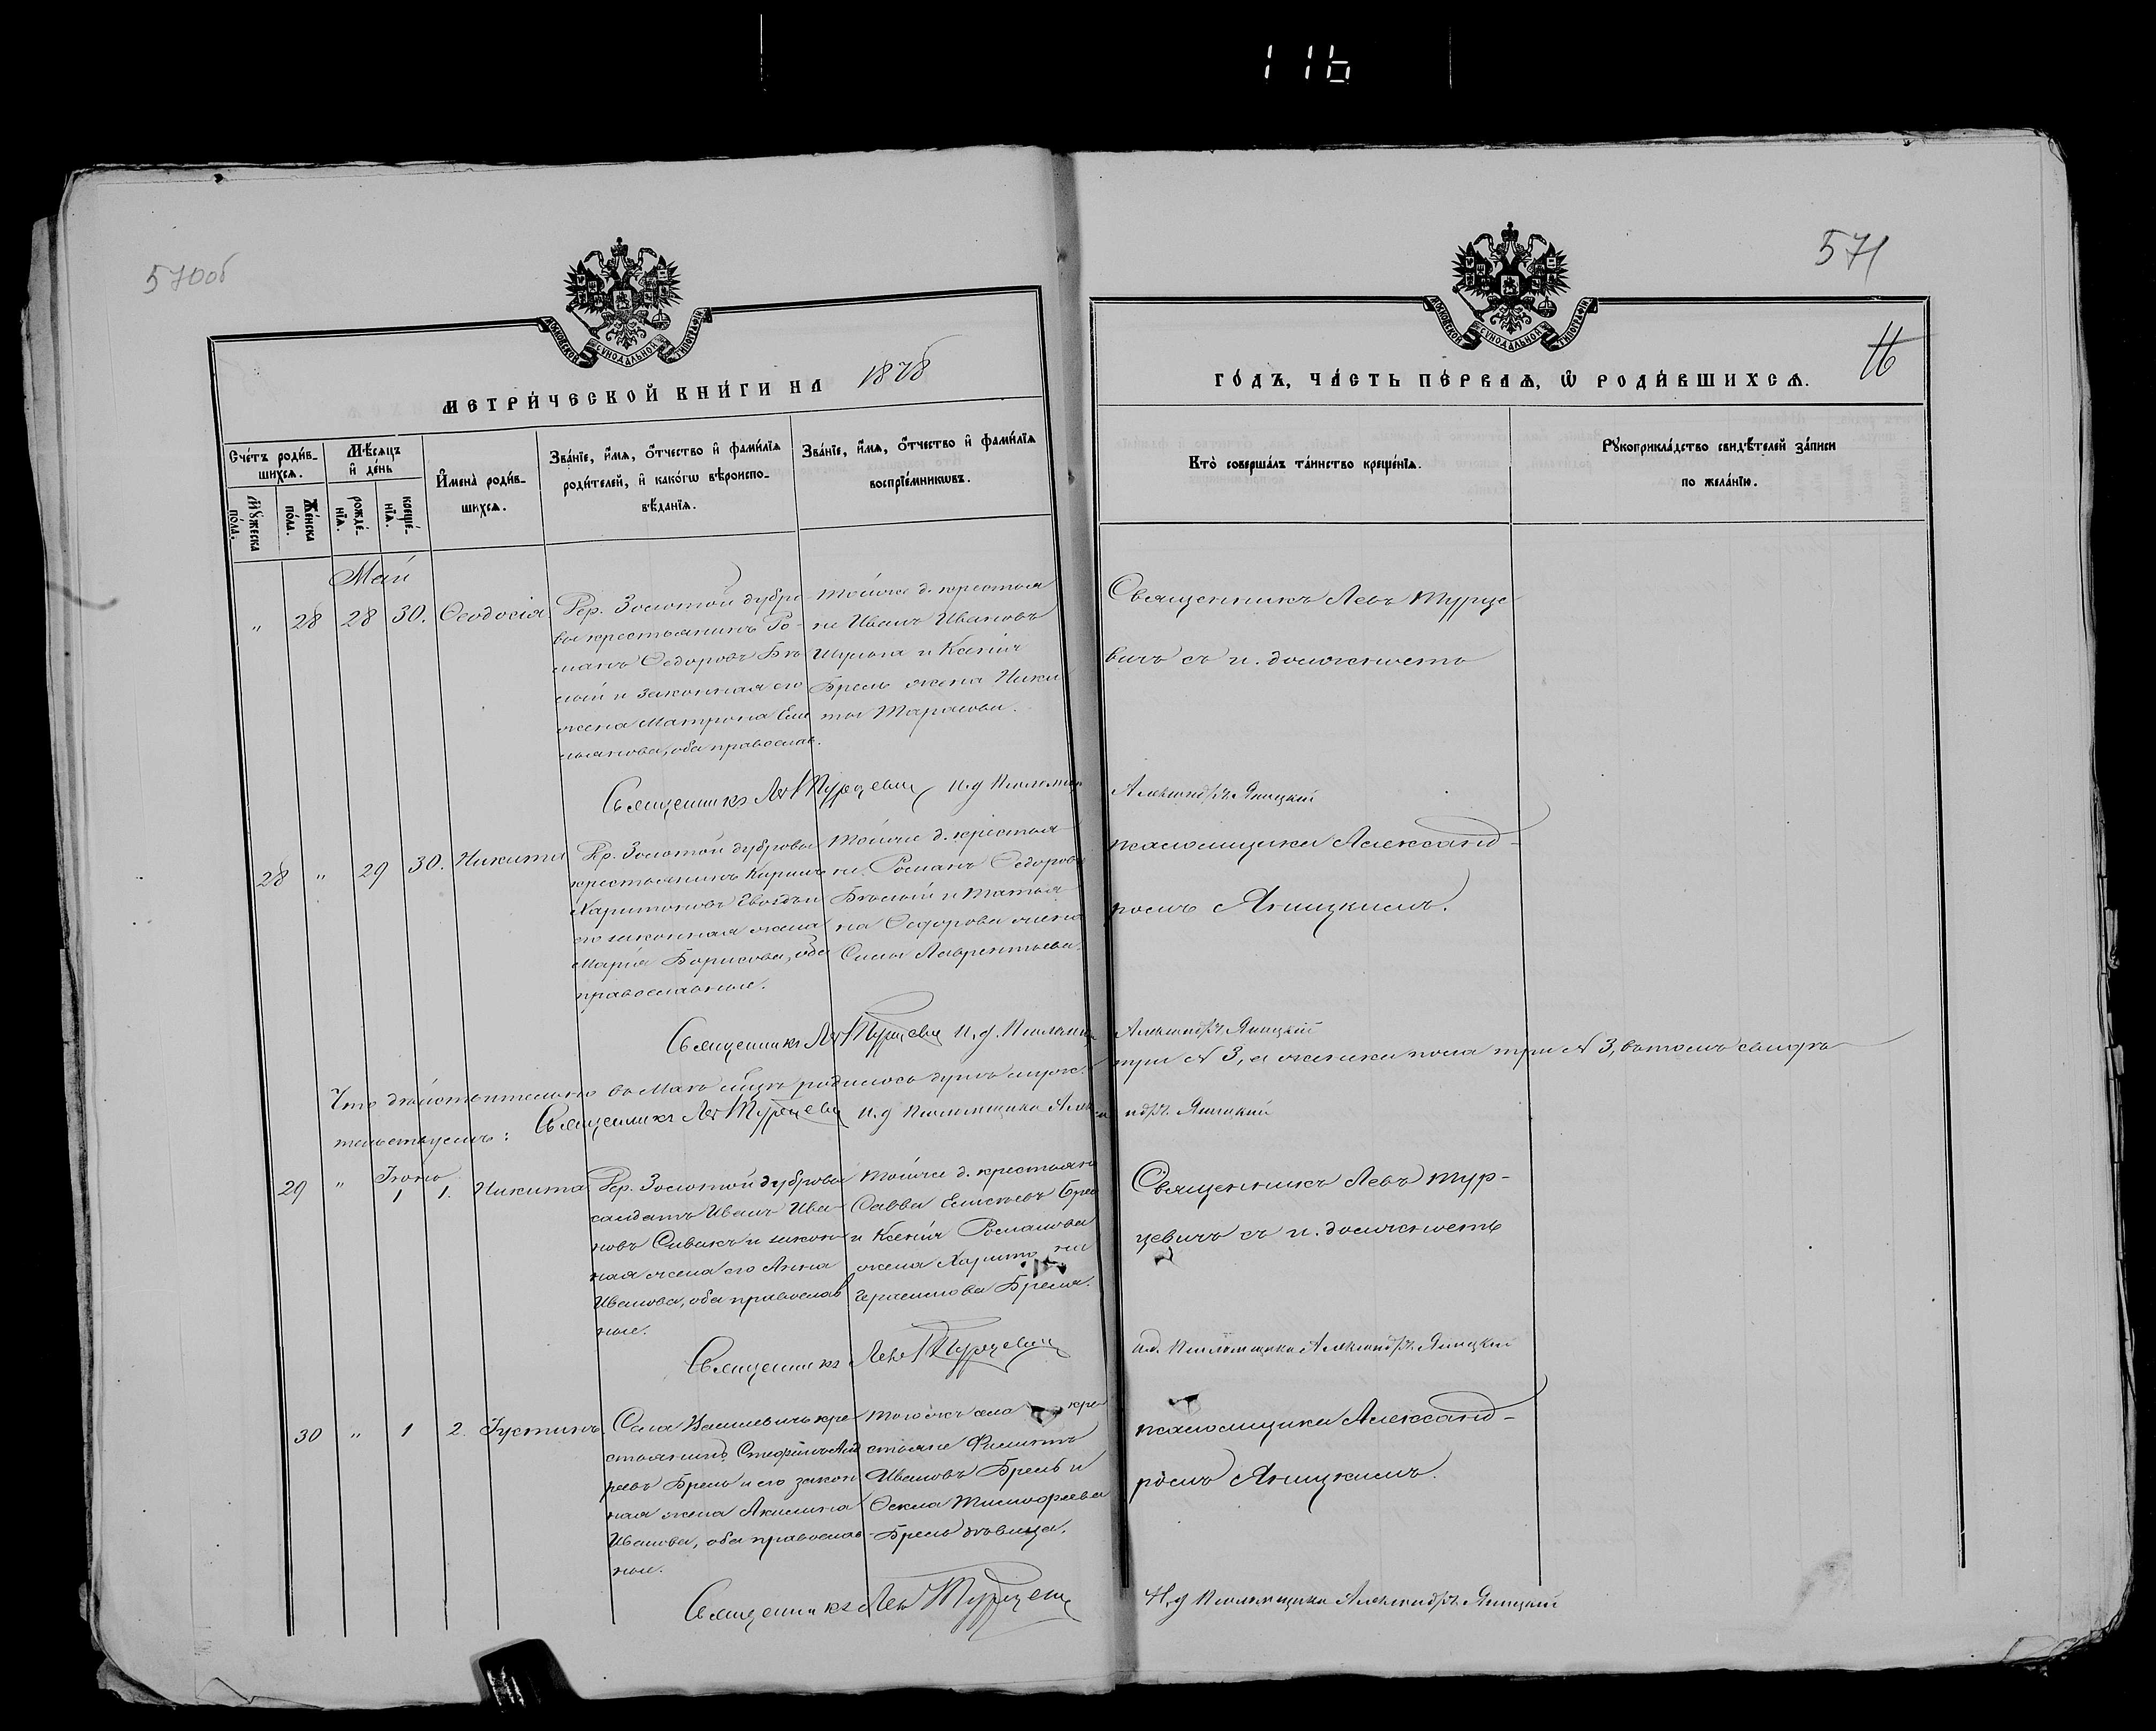 116
570об
571
16
МОСКОВСКОЙ СѴНОДАЛЬНОЙ ТИПОГРАФІИ
МОСКОВСКОЙ СѴНОДАЛЬНОЙ ТИПОГРАФІИ
МЕТРИ́ЧЕСКОЙ КНИ́ГИ НА 1878
ГО́ДЪ, ЧА́СТЬ ПЕ́РВАѦ, Ѡ҆ РОДИ́ВШИХСѦ.
Сче́тъ роди́в-
шихсѧ.
Мꙋ́жеска по́ла.
Же́нска по́ла.
Мѣ́сѧцъ
и҆ де́нь
рожде́-
нїѧ.
креще́-
нїѧ.
И҆мена̀ роди́в-
шихсѧ.
Зва́нїе, и҆́мѧ, ѻ҆́тчество и҆ фами́лїѧ
роди́телей, и҆ како́гѡ вѣроиспо-
вѣ́данїѧ.
Зва́нїе, и҆́мѧ, ѻ҆́тчество и҆ фами́лїѧ
воспрїе́мникѡвъ.
Кто̀ соверша́лъ та́инство креще́нїѧ.
Рꙋкоприкла́дство свидѣ́телей за́писи
по жела́нїю.
Май
" 28 28 30. Ѳеодосія.
Дер. Золотой дубро
вы крестьянинъ Ро-
манъ Ѳедоровъ Бѣ
лый и законная его
жена Матрона Еме
льянова, оба православ.
Тойже д. крестья
не Иванъ Ивановъ
Шульга и Ксенія
Брель жена Ники
ты Тарасова.
Священникъ Левъ Турце
вичъ съ и. должность
Священникъ Левъ Турцевичъ и.д. Псаломщ Александръ Яницкій
28 " 29 30. Никита
Дер. Золотой дубровы
крестьянинъ Кирилъ
Харитоновъ и
его законная жена
Марія Борисова, оба
православные.
Тойже д. крестья
не Романъ Ѳедоровъ
Бѣлый и Татья
на Ѳедорова жена
Силы Лаврентьева.
псаломщика Александ-
ромъ Яницкимъ.
Священникъ Левъ Турцевичъ и.д. Псаломщ Александръ Яницкій
Что дѣйствительно въ Маѣ мцѣ родилось душъ муж. три № 3, а женска пола три № 3, въ томъ свидѣ
тельствуемъ: Священникъ Левъ Турцевичъ и.д. Псаломщика Александръ Яницкій
Іюнь
29 " 1 1. Никита
Дер. Золотой дубровы
солдатъ Иванъ Ива-
новъ Сивакъ и закон
ная жена его Анна
Иванова, оба православ
ные.
Тойже д. крестьяне
Савва Елисѣевъ Брель
и Ксенія Романова
жена Харитона
Герасимова Бреля.
Священникъ Левъ Тур-
цевичъ съ и. должность
Священникъ Левъ Турцевичъ ид. Псаломщика Александръ Яницкій
30 " 1 2. Іустинъ
Села Василевичъ кре
стьянинъ Стефанъ Анд
реевъ Брель и его закон
ная жена Акилина
Иванова, оба православ-
ные.
Тогожъ села кре
стьяне Филиппъ
Ивановъ Брель и
Ѳекла Тимофеева
Брель дѣвица.
псаломщика Александ-
ромъ Яницкимъ.
Священникъ Левъ Турцевичъ И.д Псаломщика Александръ Яницкій